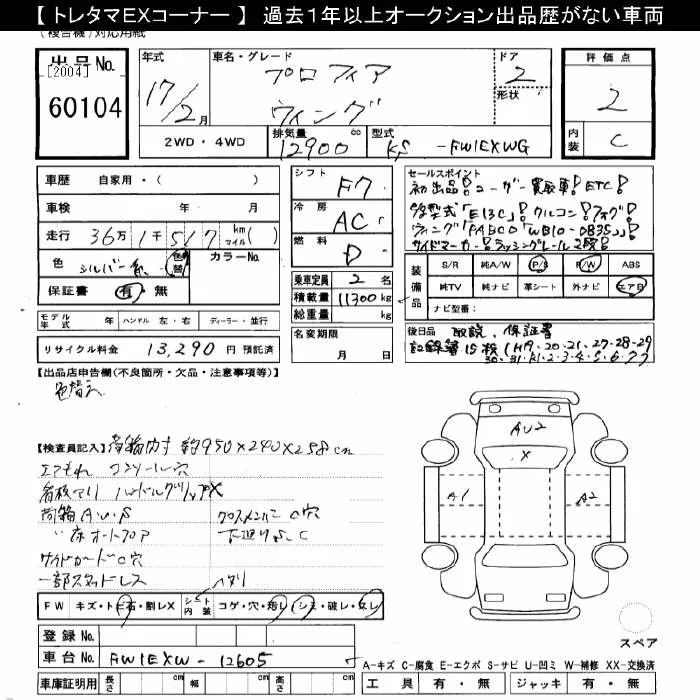 【 トレタマEXコーナー 】 過去1年以上オークション出品歴がない車両
(複合機)対応用紙
出品 No.
[2004]
60104
年式
17/2月
車名・グレード
プロフィア
ウィング
ドア
2
形状
評価点
2
内装
C
2WD・4WD
排気量
12900 cc
型式
KS -FW1EXWG
車歴 自家用・( )
車検 年 月
走行 36万1千517 km マイル( )
色 シルバー系 色替
カラーNo.
保証書 有・無
シフト F7
冷房 AC
燃料 D
乗車定員 2 名
積載量 11300 kg
総重量 kg
名変期限
月 日
セールスポイント
初出品! ユーザー買取車! ETC!
新型式「E13C」! クルコン! フォグ!
ウィング「PABCO「WB10-0835」」!
サイドマーカー! ラッシングレール2段!
装備品
S/R 純A/W P/S P/W ABS
純TV 純ナビ 革シート 外ナビ エアB
ナビ型番:
モデル年式 年 ハンドル 左・右 ディーラー・並行
リサイクル料金 13,290 円 預託済
後日品 取説、保証書
記録簿15枚(H19.20.21.27.28.29
30.31.R1.2.3.4.5.6.7)
【出品店申告欄(不良箇所・欠品・注意事項等)】
色替え
【検査員記入】荷箱内寸 約950×240×258cm
エアもれ コンソール穴
看板アリ ハンドルグリップX
荷箱A.U.S クロスメンバーC穴
〃床オートフロア 下廻りS.C
サイドガードC穴
一部スタッドレス
ヘタリ
FW キズ・トビ石・割レX
シート内装 コゲ・穴・汚レ シミ・破レ・スレ
登録 No.
車台 No. FW1EXW-12605
車庫証明用 長さ cm 幅 cm 高さ cm
AU2
X
A1
A2
スペア
A-キズ C-腐食 E-エクボ S-サビ U-凹ミ W-補修 XX-交換済
工具 有・無 ジャッキ 有・無